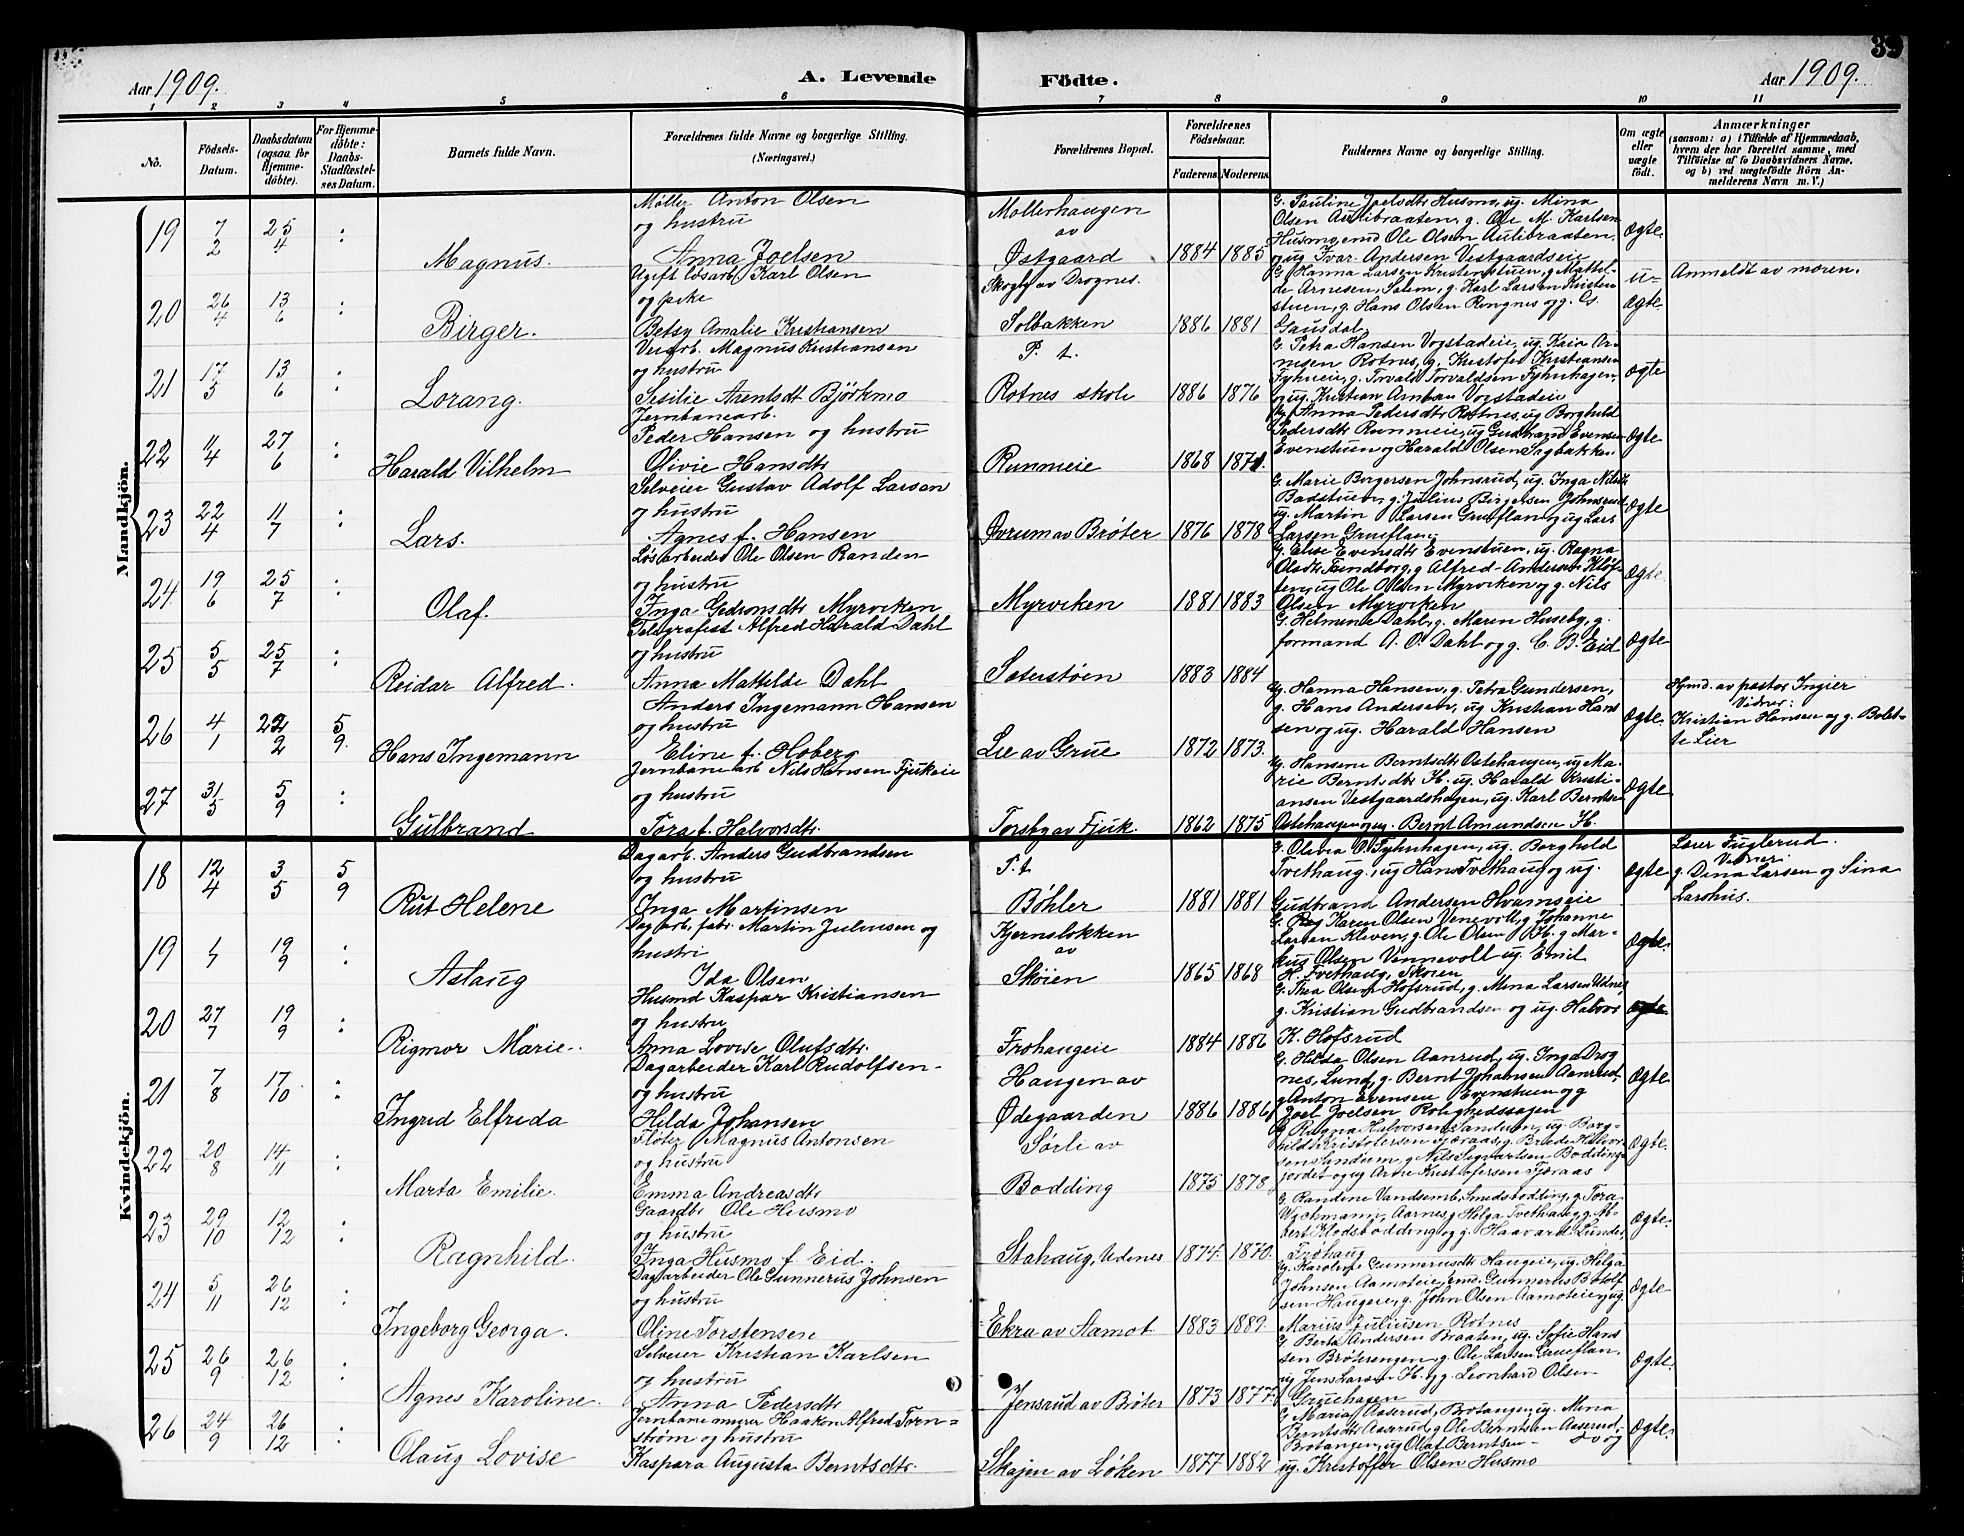 39
Aar 1909.
A. Levende
Födte.
Aar 1909.
1 2 3 4 5 6 7 8 9 10 11
No.
Födsels-
Datum.
Daabsdatum
(ogsaa for
Hjemme-
döbte).
For Hjemme-
döbte:
Daabs-
Stadfæstel-
ses Datum.
Barnets fulde Navn.
Forældrenes fulde Navne og borgerlige Stilling.
(Næringsvei.)
Forældrenes Bopæl.
Forældrenes
Födselsaar.
Faderens. Moderens.
Faddernes Navne og borgerlige Stilling.
Om ægte
eller
uægte
födt.
Anmærkninger
(saasom: a) i Tilfælde af Hjemmedaab,
hvem der har forrettet samme, med
Tilföielse af to Daabsvidners Navne,
og b) ved uægtefödte Börn An-
melderens Navn m. V.)
Mandkjön.
19 7/2 25/4 : Magnus.
Møller Anton Olsen
og hustru
Anna Joelsen
Møllerhaugen
av
Østgaard 1884 1885
G. Pauline Joelsdtr Husmo, ug. Mina
Olsen Aulibraaten, g. Ole M. Karlsen
Husmo, emd Ole Olsen Aulibraaten,
og ug. Ivar Andersen Vestgaardseie
Ægte.
20 26/4 13/6 : Birger.
Ugift løsarb. Karl Olsen
og pike
Betsy Amalie Kristiansen
Skogly av Drognes.
Solbakken 1886 1881
G. Hanna Larsen Kristenstuen, g. Mathil-
de Arnesen, Solem, g. Karl Larsen Kristen
stuen, g. Hans Olsen Ringnes og g. Gs.
Gausdal,
u-
ægte.
Anmeldt av moren.
21 17/5 13/6 : Lorang.
Veiarb. Magnus Kristiansen
og hustru
Sesilie Arentsdt Bjørkmo
P. t.
Rotnes skole 1886 1876
G. Petra Hansen Vogstadeie, ug. Kaia Ar-
nesen Rotnes, g. Kristofer Kristiansen
Fyhneie, g. Torvald Torvaldsen Fyhnhagen,
og ug. Kristian Amban Vogstadeie
ægte
22 11/4 27/6 : Harald Vilhelm
Jernbanearb.
Peder Hansen og hustru
Olivie Hansdtr
Runmeie 1868 1871.
Ug. Anna Pedersdtr Rotnes, ug Borghild
Pedersdtr Runmeie, ug Gudbrand Evensen
Evenstuen og Harald Olsen Sagbakken
Ægte
23 22/4 11/7 : Lars.
Selveier Gustav Adolf Larsen
og hustru
Agnes f. Hansen
Øvrum av Brøter 1876 1878
G. Marie Borgersen Johnsrud, ug. Inga Nilsdtr
Badstuen, g. Julius Birgersen Johnsrud
ug. Martin Larsen Grueflan, og ug Lars
Larsen Grueflan.
Ægte
24. 19/6 25/7 : Olaf.
Løsarbeider Ole Olsen Randen
og hustru
Inga Gedronsdtr Myrviken
Myrviken 1881 1883
G. Elise Evensdtr Evenstuen, ug. Ragna
Olsdtr Sundborg, g Alfred Andersen Kløf-
ten, ug Ole Olsen Myrviken og g. Nils
Olsen Myrviken
Ægte
25 5/5 25/7 : Reidar Alfred.
Telegrafist Alfred Harald Dahl
og hustru
Anna Mathilde Dahl
Saterstøen 1883 1884
G. Helmina Dahl, g. Maren Huseby, g.
formand A. O. Dahl og g. C. B. Eid
Ægte
26 4/1 22/2 5/9. Hans Ingemann
Anders Ingemann Hansen
og hustru
Eline f. Hoberg
Lie av Grue 1872 1873.
Ug. Hanna Hansen, g. Petra Gundersen,
g. Hans Andersen, ug Kristian Han-
sen og ug. Harald Hansen
Ægte.
Hjmd. av pastor Ingier
Vidner:
Kristian Hansen og g. Bolet-
te Lier
27 31/5 5/9 : Gulbrand
Jernbanearb Nils Hansen Fjukeie
og hustru
Tora f. Halvorsdtr.
Torsby av Fjuk. 1862 1875
Ug. Hansine Berntsdtr Østehaugen, ug Ma-
rie Berntsdtr H. ug. Harald Kristi-
ansen Vestgaardshagen, ug. Karl Berntsen
Østehaugen og ug. Bernt Amundsen H.
Ægte
Kvindekjön.
18 12/4 3/5 5/9 Rut Helene
Dagarb. Anders Gudbrandsen
og hustru
Inga Martinsen
P. t
Bøhler 1881 1881
G. Olivia O. Fyhnhagen, ug. Borghild
Tvethaug, ug Hans Tvethaug og ug.
Gudbrand Andersen Hvamseie
Ægte
Lærer Fuglerud.
Vidner:
g. Dina Larsen og Sina
Larshus.
19 19/9 : Aslaug
Dagarb. fabr. Martin Juliusen og
hustru
Ida Olsen
Kjernsløkken
av
Skøien 1865 1868
G. Karen Olsen Venevoll, g. Johanne
Larsen Kleven, g. Ole Olsen H. g. Mar-
kus Olsen Vennevoll ug. Emil
K. Tvethaug, Skøien
Ægte.
20 27/7 19/9 : Rigmor Marie.
Husmd Kaspar Kristiansen
og hustru
Anna Lovise Olufsdtr.
Frohaugeie 1884 1886
G. Thea Olsen Hofsrud, g. Mina Larsen Udnes,
g. Kristian Gudbrandsen og ug. Halvor
K. Hofsrud
ægte
21 7/8 17/10 : Ingrid Elfrida
Dagarbeider Karl Rudolfsen
og hustru
Hilda Johansen
Haugen av
Ødegaarden 1886 1886
G. Hilda Olsen Aanrud, ug. Inga Drog
nes, Lund, g. Bernt Johansen Aanrud,
g Anton Evensen Evenstuen og g
Joel Joelsen Rolighedssagen
Ægte
22 20/8 14/11 : Marta Emilie.
Fløter Magnus Antonsen
og hustru
Emma Andreasdtr
Sørli av
Bodding 1875 1878
G Ragna Halvorsen Sandum, ug. Borg-
hild Kristofersen Fjæraas, g. Brede Halvor-
sen Sundum, g Nils Sigvartsen Bodding-
jordet og ug Arne Kristofersen Fjæraas
Ægte.
23 29/10 12/12 : Ragnhild.
Gaardbr Ole Husmo
og hustru
Inga Husmo f Eid.
Stahaug, Udenes 1874. 1870.
G. Randine Vandsemb, Smedsbodding, g. Tora
Wichmann, Aarnes, g Helga Tvethaug, g. Al-
bert Modsbodding og g. Haavard Lunder,
Frohaug
Ægte.
24 5/11 26/12 : Ingeborg Georga.
Dagarbeider Ole Gunnerus Johnsen
og hustru
Oline Torstensen
Ekra av Aamot 1883 1889
Ug. Karoline Gunnerusdtr Haugeie, ug. Helga
Johnsen Aamoteie, emd. Gunnerus Botolf
sen Haugeie, g. John Olsen Aamoteie, ug
Marius Juliusen Rotnes
Ægte
25 26/9 26/12 : Agnes Karoline.
Selveier Kristian Karlsen
og hustru
Anna Pedersdtr
Jensrud av Brøter 1873 1877.
G. Berta Andersen Braaten, ug. Sofie Han
sen Brøterengen, g. Ole Larsen Grueflan,
ug Jens Larsen H. og g. Leonhard Olsen
Gruehagen
Ægte.
26 24/9 26/12 : Olaug Lovise
Jernbanemurer Haakon Alfred Torn-
strøm og hustru
Kaspara Augusta Berntsdtr.
Skajen av Løken 1877 1882
G. Maria Aaserud, Brotangen, ug. Mina
Berntsdtr Aaserud, g Ole Berntsen Aaserud,
Brotangen, ug Olaf Berntsen og
ug. Kristoffer Olsen Husmo
Ægte.